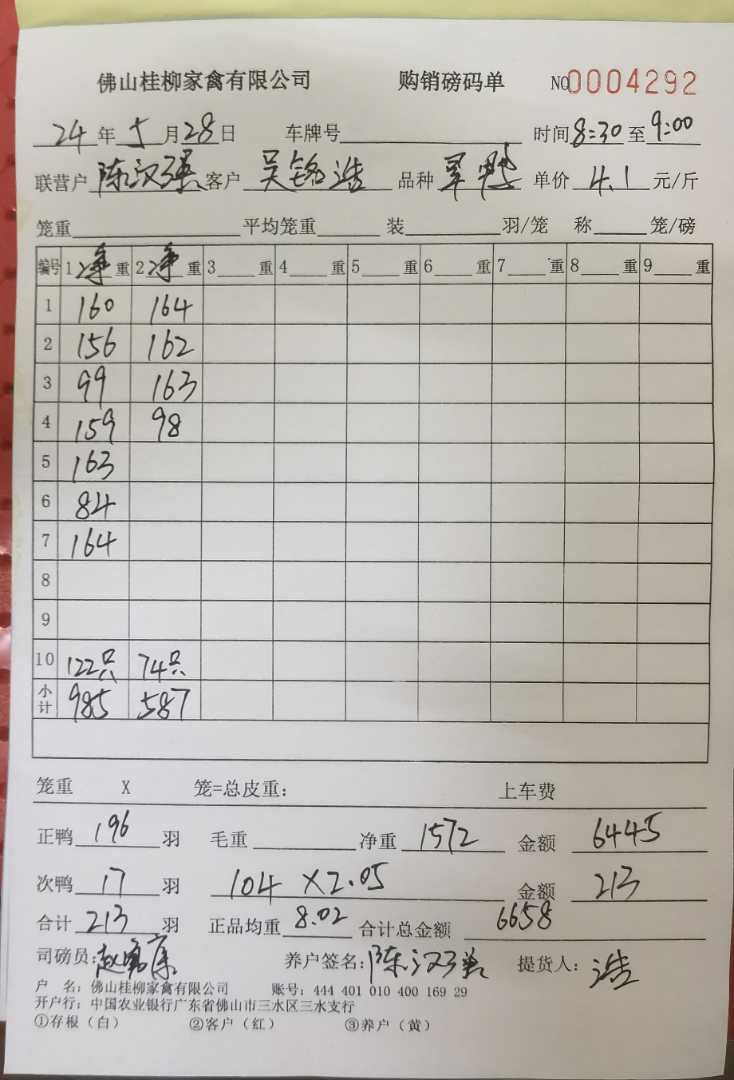 佛山桂柳家禽有限公司 购销磅码单 NO0004292
24年5月28日 车牌号 时间8:30至9:00
联营户陈汉强客户吴铭浩 品种 单价4.1元/斤
笼重 平均笼重 装 羽/笼 称 笼/磅
编号 1净重 2净重 3 重 4 重 5 重 6 重 7 重 8 重 9 重
1 160 164
2 156 162
3 99 163
4 159 98
5 163
6 84
7 164
8
9
10 122只 74只
小计 985 587
笼重 X 笼=总皮重: 上车费
正鸭196羽 毛重 净重1572 金额6445
次鸭17羽 104×2.05 金额213
合计213羽 正品均重8.02 合计总金额6658
司磅员: 养户签名:陈汉强 提货人:浩
户 名:佛山桂柳家禽有限公司 账号:444 401 010 400 169 29
开户行:中国农业银行广东省佛山市三水区三水支行
①存根(白) ②客户(红) ③养户(黄)